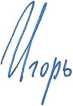 Игорь